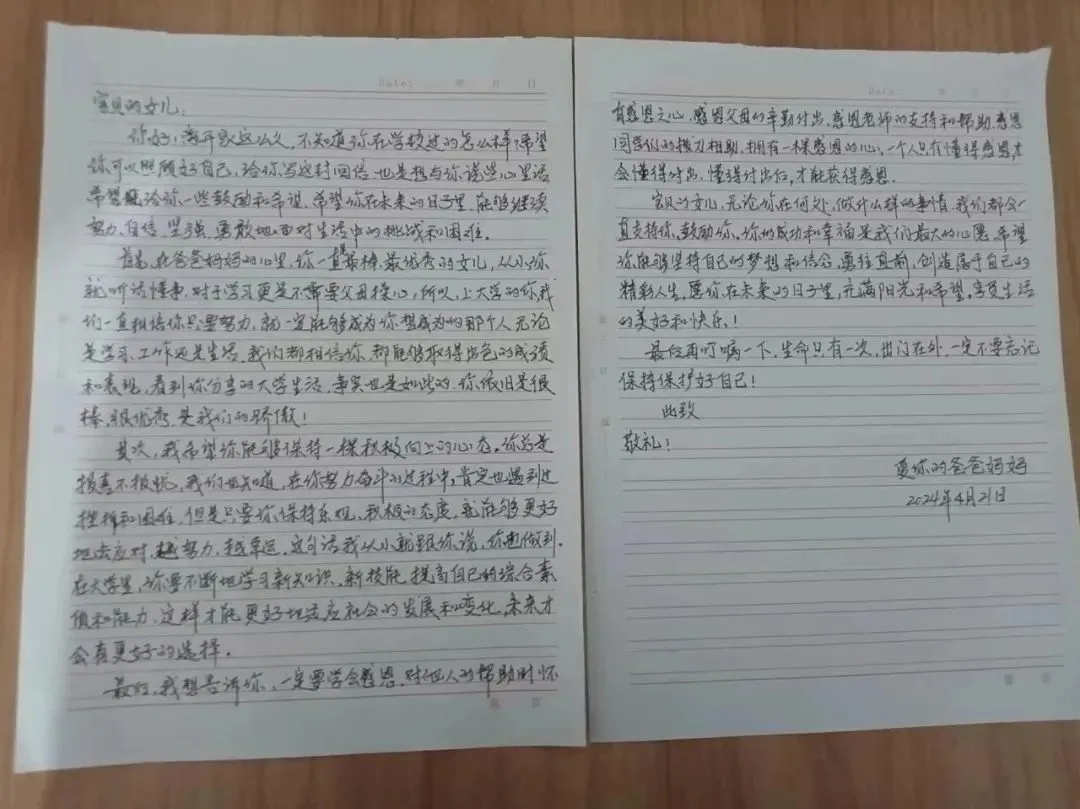 Date:     年   月   日
宝贝的女儿:
你好,离开家这么久,不知道你在学校过的怎么样,希望
你可以照顾好自己,给你写这封回信,也是想与你说些心里话
希望能给你一些鼓励和希望,希望你在未来的日子里,能够继续
努力、自信、坚强、勇敢地面对生活中的挑战和困难。
首先,在爸爸妈妈的心里,你一直是最棒、最优秀的女儿,从小你
就听话懂事,对于学习更是不需要父母操心,所以,上大学的你我
们一直相信你只要努力,就一定能够成为你想成为的那个人,无论
是学习、工作还是生活,我们都相信你,都能够取得出色的成绩
和表现,看到你分享的大学生活,事实也是如此的,你依旧是很
棒、很优秀,是我们的骄傲!
其次,我希望你能够保持一棵积极向上的心态。你总是
报喜不报忧,我们也知道,在你努力奋斗的过程中,肯定也遇到过
挫折和困难,但是只要你保持乐观、积极的态度,就能够更好
地去应对,越努力,越幸运,这句话我从小就跟你说,你也做到。
在大学里,你要不断地学习新知识、新技能,提高自己的综合素
质和能力,这样才能更好地适应社会的发展和变化,未来才
会有更好的选择。
最后,我想告诉你,一定要学会感恩,对他人的帮助时怀
Date:     年   月   日
有感恩之心,感恩父母的辛勤付出,感恩老师的支持和帮助,感恩
同学们的援力相助,拥有一棵感恩的心,一个人只有懂得感恩,才
会懂得付出,懂得付出后,才能获得感恩。
宝贝的女儿,无论你在何处,做什么样的事情,我们都会一
直支持你、鼓励你。你的成功和幸福是我们最大的心愿,希望
你能够坚持自己的梦想和信念,勇往直前,创造属于自己的
精彩人生。愿你在未来的日子里,充满阳光和希望,享受生活
的美好和快乐!
最后再叮嘱一下,生命只有一次,出门在外,一定不要忘记
保持保护好自己!
此致
敬礼!
爱你的爸爸妈妈
2024年4月21日